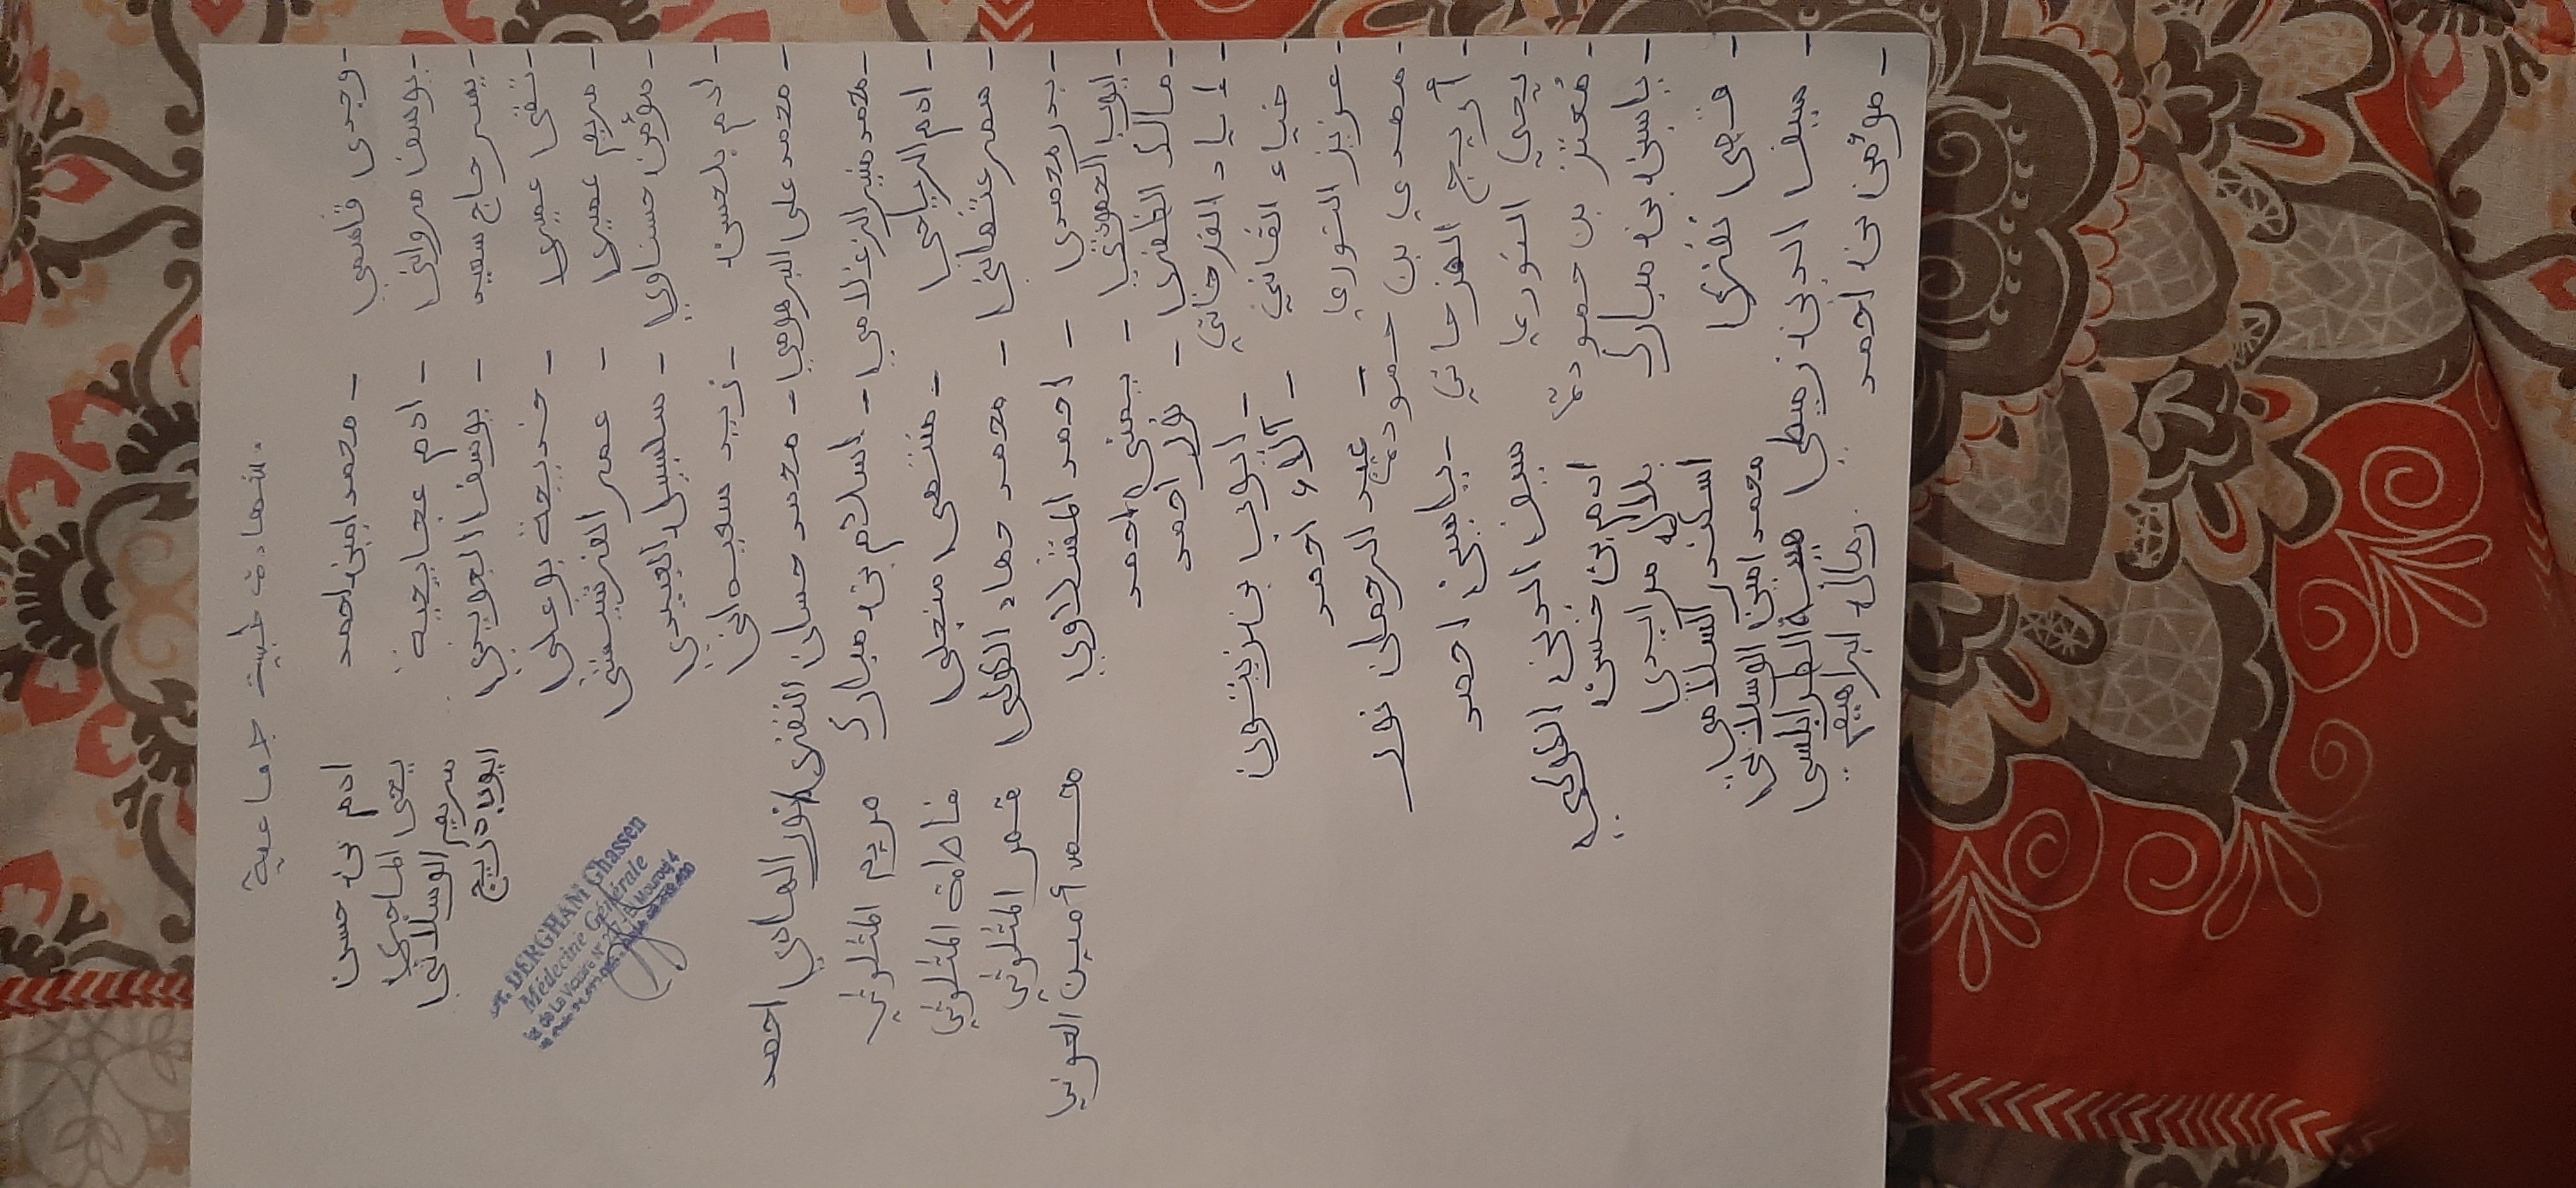 شهادة طبية جماعية.
- وجدي قاسمي - محمد امين احمد ادم بن حسن
- يوسف مرواني - ادم عجايبية يحي الماجري
- يسر حاج سعيد - يوسف الجويني مريم الوسلاتي
- تقى عميري - خديجة بوعلي ايوب دريج
- مريم عميري - عمر الفرشيشي
- مؤمن حسناوي - سلسبيل العبيدي
- ادم بلحسن - زبيد سعيداني
- محمد علي البرهومي - محمد حسان النفزي نور الهادي احمد
- محمد منير الزغلامي - اسلام بن مبارك مريم المثلوثي
- ادم الرياحي - منتهى منجلي فاطمة المثلوثي
- سمر عثماني - محمد حماد الكولي قمر المثلوثي
- بدر محمدي - احمد المقتداوي محمد أمين العوني
- ايوب العموشي - يمنى احمد
- مالك الظفري - نور احمد
- إياد الفرحاني - ايوب بن زيتون
- ضياء القاني - آلاء احمد
- عزيز النوري - عبد الرحمان نور
- مهدي بن حمودة
- أريج الفرحاني - ياسين احمد
- يحي النوري سيف الدين الكولي
- مُعتز بن حمودة ادم بن حسن
- ياسين بن مبارك بلال مرايدي
- فجي نفزي اسكندر السلامي
- سيف الدين زميطي محمد امين الوسلاتي
- مؤمن بن احمد الطرابلسي
رتال ابراهيم
Dr. DERGHAM Ghassen
Médecine Générale